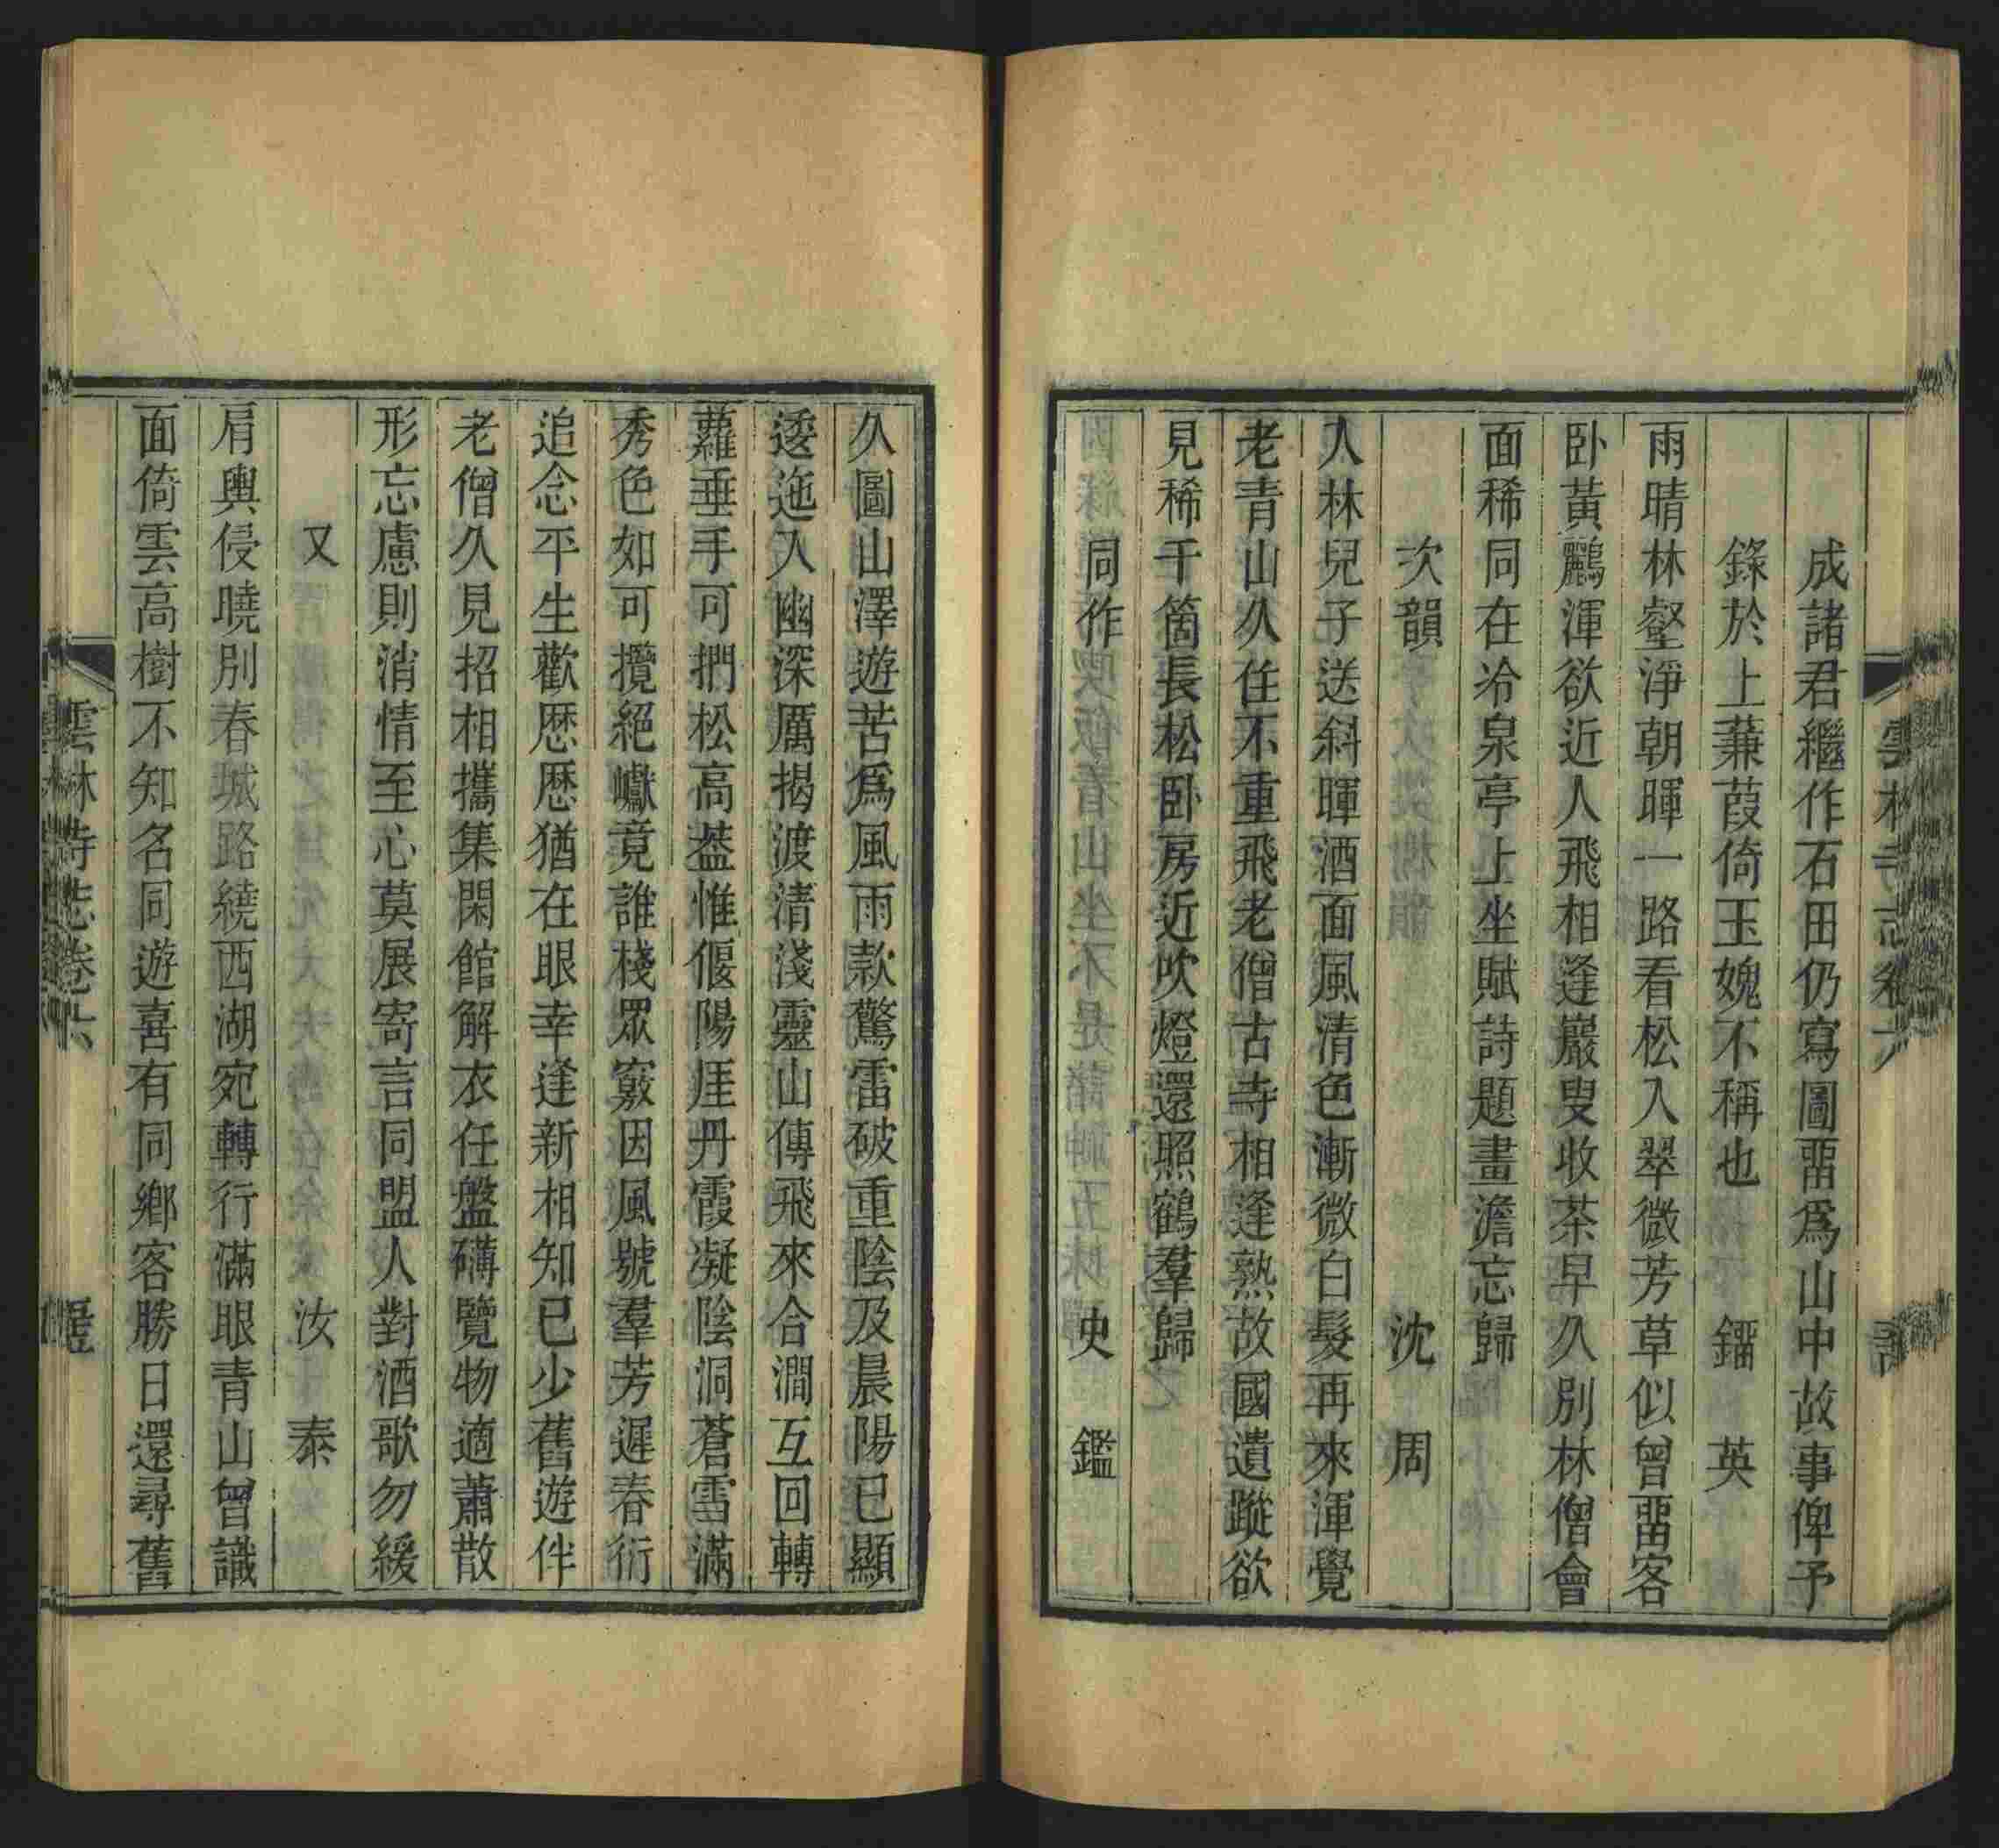 雲林寺志卷六
成諸君繼作石田仍寫圖畱爲山中故事俾予
錄於上蒹葭倚玉媿不稱也 鎦 英
雨晴林壑淨朝暉一路看松入翠微芳草似曾畱客
卧黃鸝渾欲近人飛相逢巖叟收茶早久別林僧會
面稀同在冷泉亭上坐賦詩題畫澹忘歸
次韻 沈 周
人林兒子送斜暉酒面風清色漸微白髮再來渾覺
老青山久住不重飛老僧古寺相逢熟故國遺蹤欲
見稀千箇長松卧房近吹燈還照鶴羣歸
同作 史 鑑
久圖山澤遊苦爲風雨款驚雷破重陰及晨陽已顯
逶迤入幽深厲揭渡清淺靈山傳飛來合澗互回轉
蘿垂手可捫松高葢惟偃陽厓丹霞凝陰洞蒼雪滿
秀色如可攬絕巘竟誰棧眾竅因風號羣芳遲春衍
追念平生歡歷歷猶在眼幸逢新相知已少舊遊伴
老僧久見招相攜集閑館解衣任盤礴覽物適蕭散
形忘慮則消情至心莫展寄言同盟人對酒歌勿緩
又 汝 泰
肩輿侵曉別春城路繞西湖宛轉行滿眼青山曾識
面倚雲高樹不知名同遊喜有同鄉客勝日還尋舊
雲林寺志卷六